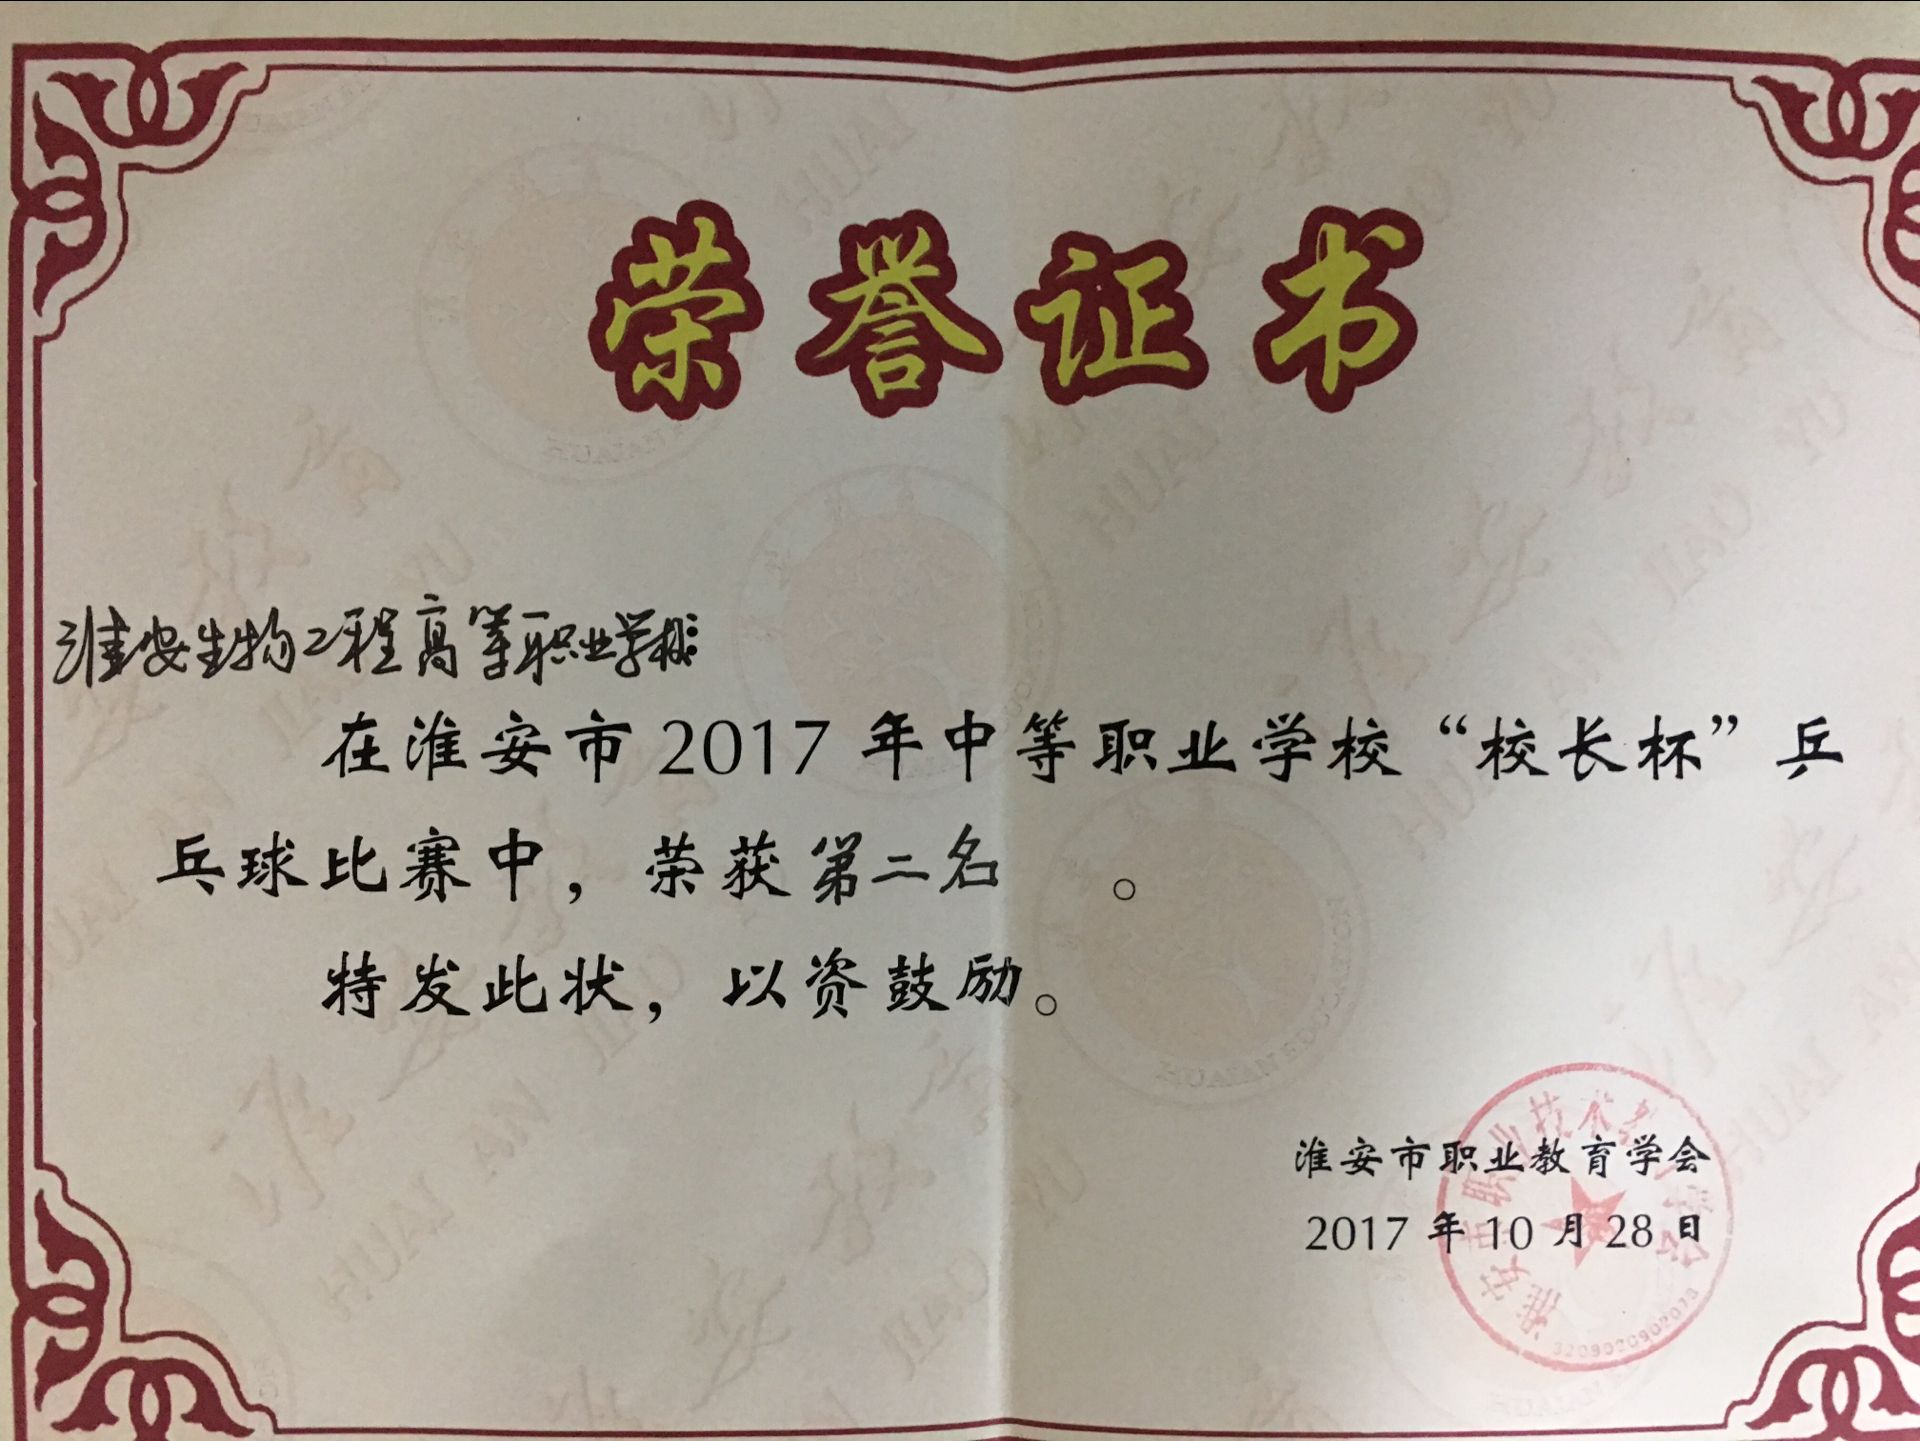 荣誉证书
淮安生物工程高等职业学校:
在淮安市 2017 年中等职业学校“校长杯”乒
乓球比赛中，荣获第二名 。
特发此状，以资鼓励。
淮安市职业教育学会
2017 年 10 月 28 日
淮安市职业技术教育学会